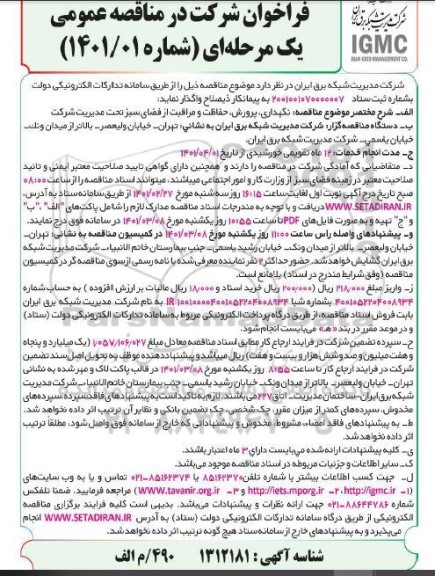 فراخوان شرکت در مناقصه عمومی
یک مرحله‌ای (شماره ۱۴۰۱/۰۱)
شرکت مدیریت شبکه برق ایران
IGMC
IRAN GRID MANAGEMENT CO.
شرکت مدیریت شبکه برق ایران در نظر دارد موضوع مناقصه ذیل را از طریق سامانه تدارکات الکترونیکی دولت
بشماره ثبت ستاد ۲۰۰۱۰۰۱۰۷۰۰۰۰۰۰۷ به پیمانکار ذیصلاح واگذار نماید:
الف- شرح مختصر موضوع مناقصه: نگهداری، پرورش، حفاظت و مراقبت از فضای سبز تحت مدیریت شرکت
ب- دستگاه مناقصه‌گزار: شرکت مدیریت شبکه برق ایران به نشانی: تهران- خیابان ولیعصر- بالاتر از میدان ونک-
خیابان یاسمی- شرکت مدیریت شبکه برق ایران.
ج- مدت انجام خدمات: ۱۲ ماه تقویمی خورشیدی از تاریخ ۱۴۰۱/۰۴/۰۱
د- متقاضیانی که آمادگی شرکت در مناقصه را دارند و همچنین دارای گواهی تایید صلاحیت معتبر ایمنی و تائید
صلاحیت معتبر در زمینه فضای سبز از وزارت کار و امور اجتماعی میباشند، میتوانند اسناد مناقصه را از ساعت ۰۸:۰۰
صبح تاریخ درج آگهی نوبت اول لغایت ساعت ۱۶:۱۵ روز سه شنبه مورخ ۱۴۰۱/۰۲/۲۷ از طریق سامانه ستاد به آدرس
WWW.SETADIRAN.IR دریافت و با توجه به مندرجات اسناد مناقصه مدارک لازم را شامل پاکت‌های "الف"، "ب"
و "ج" تهیه و به صورت فایل‌های PDF تا ساعت ۱۰:۵۵ روز یکشنبه مورخ ۱۴۰۱/۰۳/۰۸ در سامانه فوق درج نمایند.
و- پیشنهادهای واصله راس ساعت ۱۱:۰۰ روز یکشنبه مورخ ۱۴۰۱/۰۳/۰۸ در کمیسیون مناقصه به نشانی: تهران-
خیابان ولیعصر- بالاتر از میدان ونک- خیابان رشید یاسمی- جنب بیمارستان خاتم الانبیاء- شرکت مدیریت شبکه
برق ایران گشایش خواهد شد. حضور حداکثر ۲ نفر نماینده معرفی‌شده با نامه رسمی از سوی مناقصه گر در کمیسیون
مناقصه (وفق شرایط مندرج در اسناد) بلامانع است.
ز- واریز مبلغ ۲۱۸,۰۰۰ ریال (۲۰۰,۰۰۰ ریال خرید اسناد و ۱۸,۰۰۰ ریال مالیات بر ارزش افزوده) به حساب شماره
بابت فروش اسناد مناقصه، از طریق درگاه پرداخت الکترونیکی مربوط به سامانه تدارکات الکترونیکی دولت (ستاد)
و در موعد مقرر در بند «د» می‌بایست انجام شود.
ح- سپرده تضمین شرکت در فرایند ارجاع کار مطابق اسناد مناقصه معادل مبلغ ۱,۰۵۷,۱۰۶,۰۲۷ (یک میلیارد و پنجاه
و هفت میلیون و صد و شش هزار و بیست و هفت) ریال میباشد و پیشنهاددهنده موظف به تحویل اصل سند تضمین
شرکت در فرایند ارجاع کار تا ساعت ۸:۵۵ روز یکشنبه مورخ ۱۴۰۱/۰۳/۰۸ در قالب پاکت لاک و مهر شده به نشانی
تهران- خیابان ولیعصر- بالاتر از میدان ونک- خیابان رشید یاسمی- جنب بیمارستان خاتم الانبیاء- شرکت مدیریت
شبکه برق ایران- ساختمان مدیریت- اتاق ۲۲۷ می‌باشند. لازم به تاکید است به پیشنهادهای فاقد سپرده، سپرده‌های
مخدوش، سپرده‌های کمتر از میزان مقرر، چک شخصی، چک تضمین بانکی و نظایر آن ترتیب اثر داده نخواهد شد.
ط- به پیشنهادهای فاقد امضاء، مشروط، مخدوش و پیشنهاداتی که خارج از سامانه فوق واصل شود، مطلقا ترتیب
اثر داده نخواهد شد.
ی- کلیه پیشنهادات ارائه شده می‌بایست دارای ۳ ماه اعتبار باشند.
ک- سایر اطلاعات و جزئیات مربوطه در اسناد مناقصه موجود می‌باشد.
ل- جهت کسب اطلاعات بیشتر با شماره تلفن ۸۵۱۶۲۳۷۰ یا ۰۲۱-۸۵۱۶۲۳۷۴ تماس و یا به وب سایت‌های
(۱- http://igmc.ir ۲- http://iets.mporg.ir و ۳- www.tavanir.org.ir) مراجعه فرمایید. ضمنا تلفکس
شماره ۰۲۱-۸۸۶۴۴۷۸۶ جهت ارائه نظرات و پیشنهادات می‌باشد. بدیهی است کلیه فرایند برگزاری مناقصه
الکترونیکی از طریق درگاه سامانه تدارکات الکترونیکی دولت (ستاد) به آدرس WWW.SETADIRAN.IR انجام
می‌پذیرد و به پیشنهادهای خارج از سامانه ستاد هیچ گونه ترتیب اثر داده نخواهد شد.
شناسه آگهی: ۱۳۱۲۱۸۱ ۴۹۰/م الف